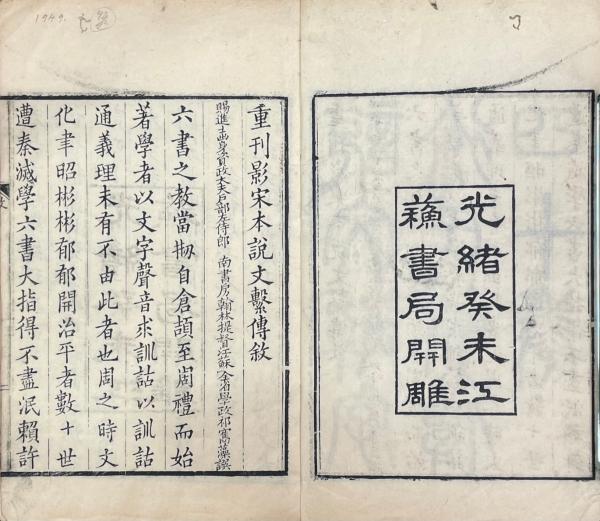 光緒癸未江
蘇書局開雕
重刊影宋本說文繫傳敘
賜進士出身資政大夫戶部左侍郎 南書房翰林提督江蘇全省學政祁寯藻譔
六書之教當㧞自倉頡至周禮而始
著學者以文字聲音求訓詁以訓詁
通義理未有不由此者也周之時文
化聿昭彬彬郁郁開治平者數十世
遭秦滅學六書大指得不盡泯賴許
1949.